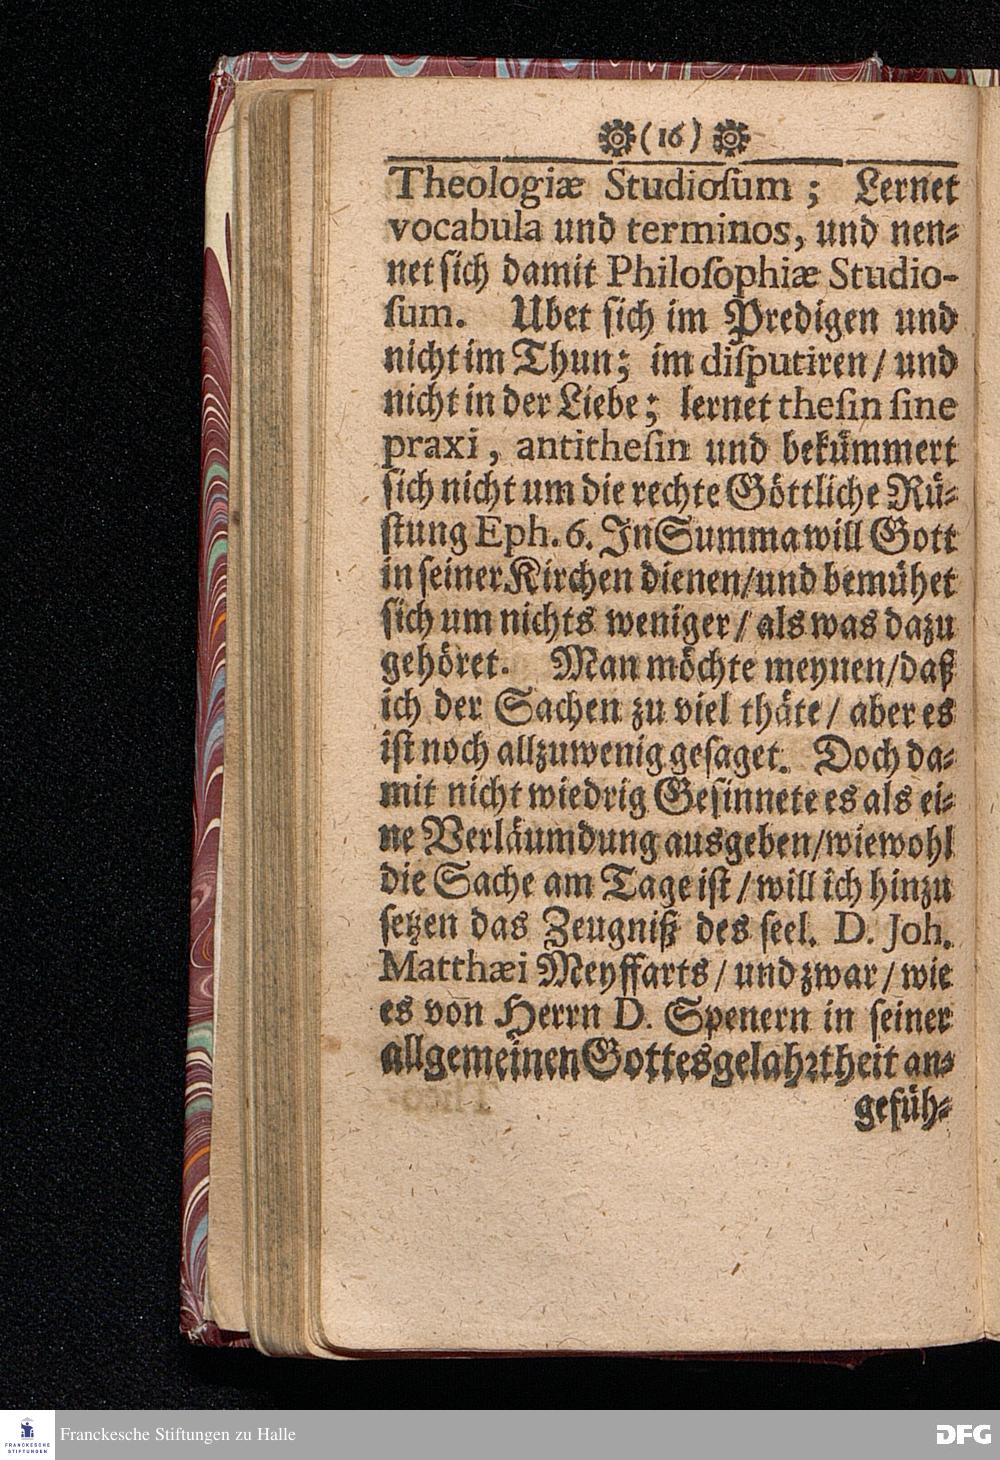 (16)
Theologiæ Studioſum ; Lernet
vocabula und terminos, und nen⸗
net ſich damit Philoſophiæ Studio-
ſum. Ubet ſich im Predigen und
nicht im Thun; im diſputiren / und
nicht in der Liebe; lernet theſin ſine
praxi, antitheſin und bekümmert
ſich nicht um die rechte Göttliche Rü⸗
ſtung Eph. 6. In Summa will Gott
in ſeiner Kirchen dienen/und bemühet
ſich um nichts weniger / als was dazu
gehöret. Man möchte meynen/daß
ich der Sachen zu viel thäte / aber es
iſt noch allzuwenig geſaget. Doch da⸗
mit nicht wiedrig Geſinnete es als ei⸗
ne Verläumdung ausgeben/wiewohl
die Sache am Tage iſt / will ich hinzu
ſetzen das Zeugniß des ſeel. D. Joh.
Matthæi Meyffarts / und zwar / wie
es von Herrn D. Spenern in ſeiner
allgemeinen Gottesgelahꝛtheit an⸗
gefüh⸗
FRANCKESCHE
STIFTUNGEN
Franckesche Stiftungen zu Halle
DFG